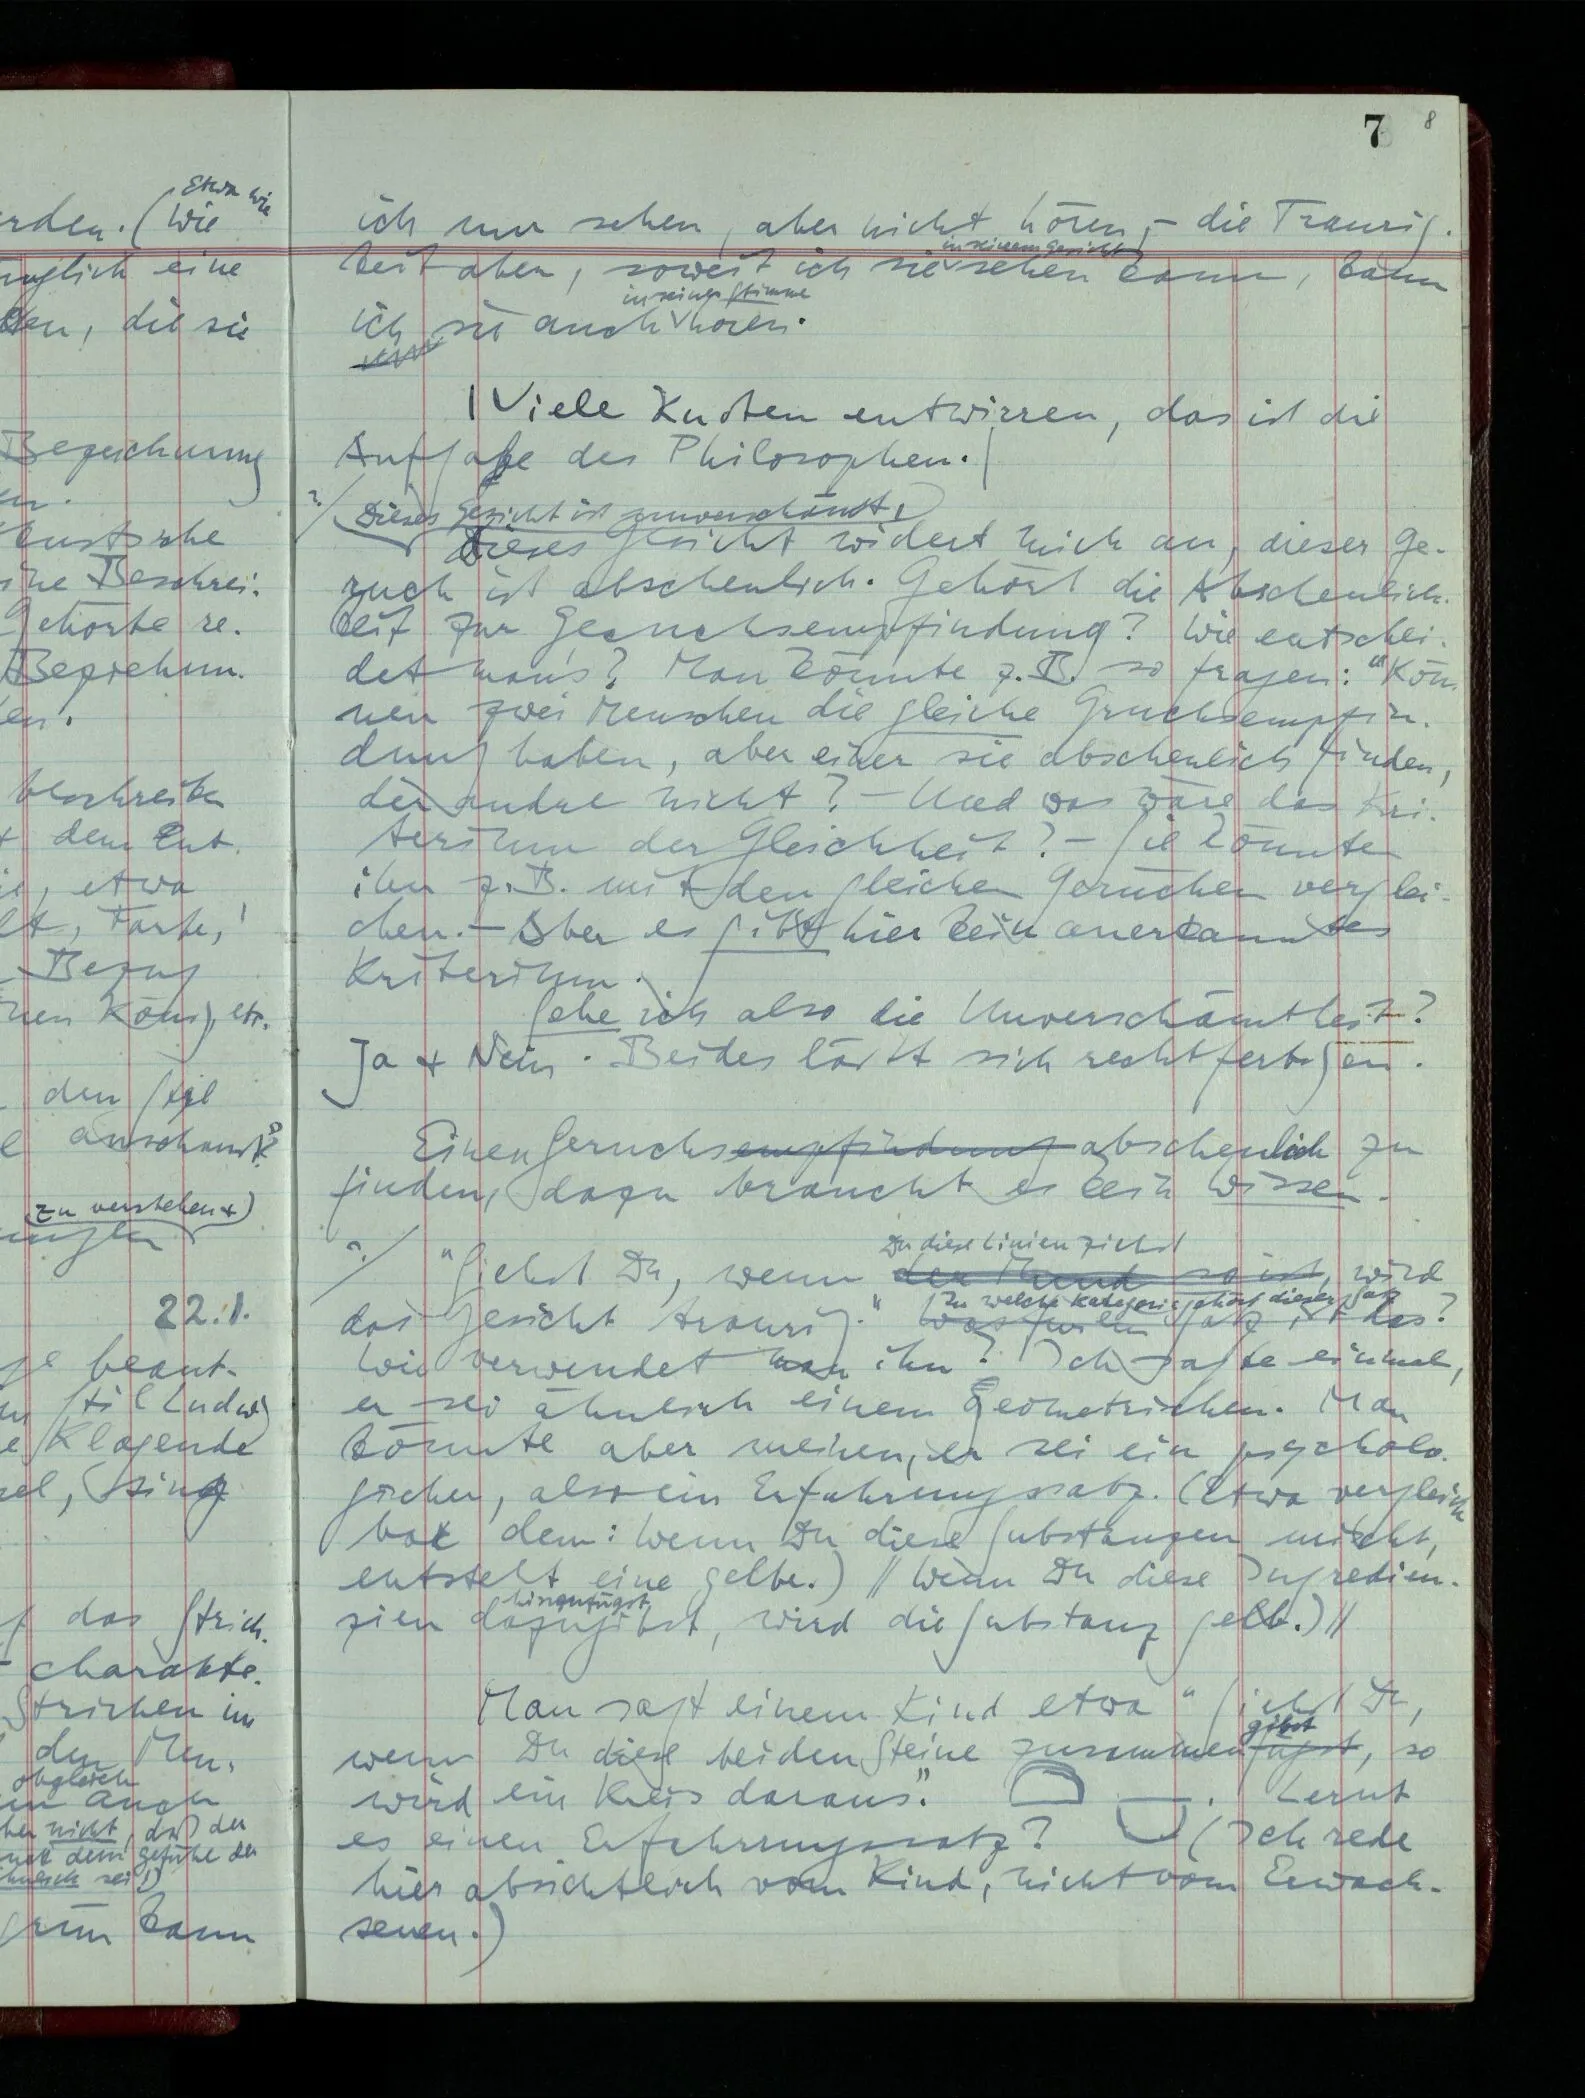 Etwa wie
rden. (Wie
eine
en, die sie
Bezeichnung
ine Beschrei-
Gehörte re-
Beziehun-
beschreibe
dem Ent-
, etwa
lt, Farbe,
Bezug
König, etc.
den Stil
anschaust
zu verstehen +)
22.1.
ge beant-
Stil Ludwig
e Klagende
das Strich-
charakte-
Strichen im
den Men-
obgleich
auch
her nicht, daß der
dem Gefühle der
sei!)
grün kann
7 8
ich nur sehen, aber nicht hören, – die Traurig-
in seinem Gesicht
keit aber, soweit ich sie sehen kann, kann
in seiner Stimme
ich sie auch hören.
| Viele Knoten entwirren, das ist die
Aufgabe des Philosophen. |
?/ Dieses Gesicht ist unverschämt,
Dieses Gesicht widert mich an, dieser Ge-
ruch ist abscheulich. Gehört die Abscheulich-
keit zur Geruchsempfindung? Wie entschei-
det man's? Man könnte z.B. so fragen: "Kön-
nen zwei Menschen die gleiche Gruchsempfin-
dung haben, aber einer sie abscheulich finden,
der andre nicht? – Und was wäre das Kri-
terium der Gleichheit? – Sie könnten
ihn z.B. mit den gleichen Gerüchen verglei-
chen. – Aber es gibt hier kein anerkanntes
Kriterium.
Sehe ich also die Unverschämtheit?
Ja + Nein. Beides läßt sich rechtfertigen.
Einen Geruchsempfindung abscheulich zu
finden, dazu braucht es kein wissen.
Du diese Linien ziehst
?/ "Siehst Du, wenn der Mund so ist, wird
Zu welche Kategorie gehört dieser Satz
das Gesicht traurig." Was für ein Satz ist das?
Wie verwendet man ihn? Ich sagte einmal,
er sei ähnlich einem Geometrischen. Man
könnte aber meinen, er sei ein psycholo-
gischer, also ein Erfahrungssatz. (Etwa vergleich-
bar dem: Wenn Du diese Substanzen mischt,
entsteht eine gelbe.) // Wenn Du diese Ingredien-
hinzufügst
zien dazugibst, wird die Substanz gelb.) //
Man sagt einem Kind etwa "Siehst Du,
gibst
wenn Du diese beiden Steine zusammenfügst, so
wird ein Kreis daraus." . Lernt
es einen Erfahrungssatz? (Ich rede
hier absichtlich vom Kind, nicht vom Erwach-
senen.)